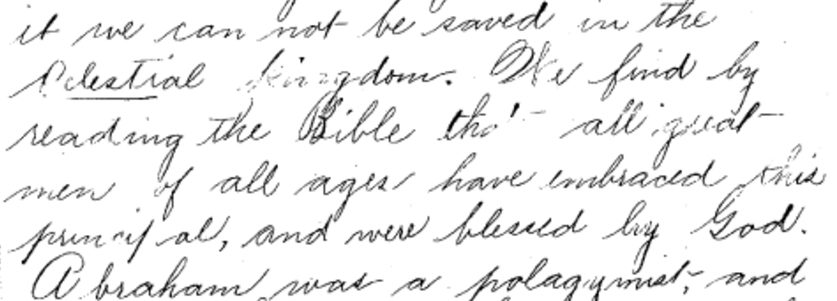 it we can not be saved in the
Celestial kingdom. We find by
reading the Bible that all great
men of all ages have embraced this
principal, and were blessed by God.
Abraham was a polagymist, and